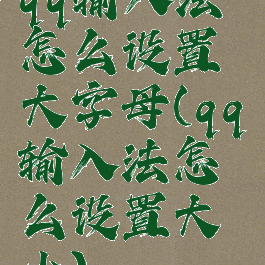 qq输入法
怎么设置
大字母(qq
输入法怎
么设置大
小)